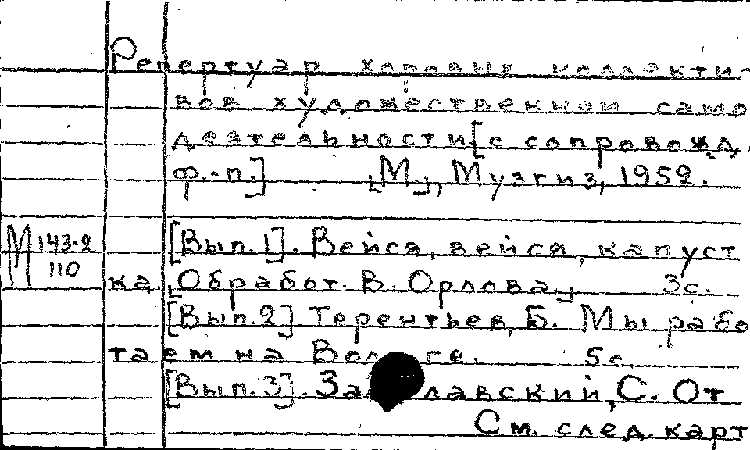 Репертуар хоровых коллекти-
вов художественной само
деятельности [с сопровожд.
ф.-п.] [М.], Музгиз, 1952.
М 143-2 [Вып.1]. Вейся, вейся, капуст
110 ка [Обработ. В. Орлова.] 3с.
[Вып.2] Терентьев, Б. Мы рабо
таем на Волге. 5с.
[Вып.3]. Заславский, С. От
См. след. карт